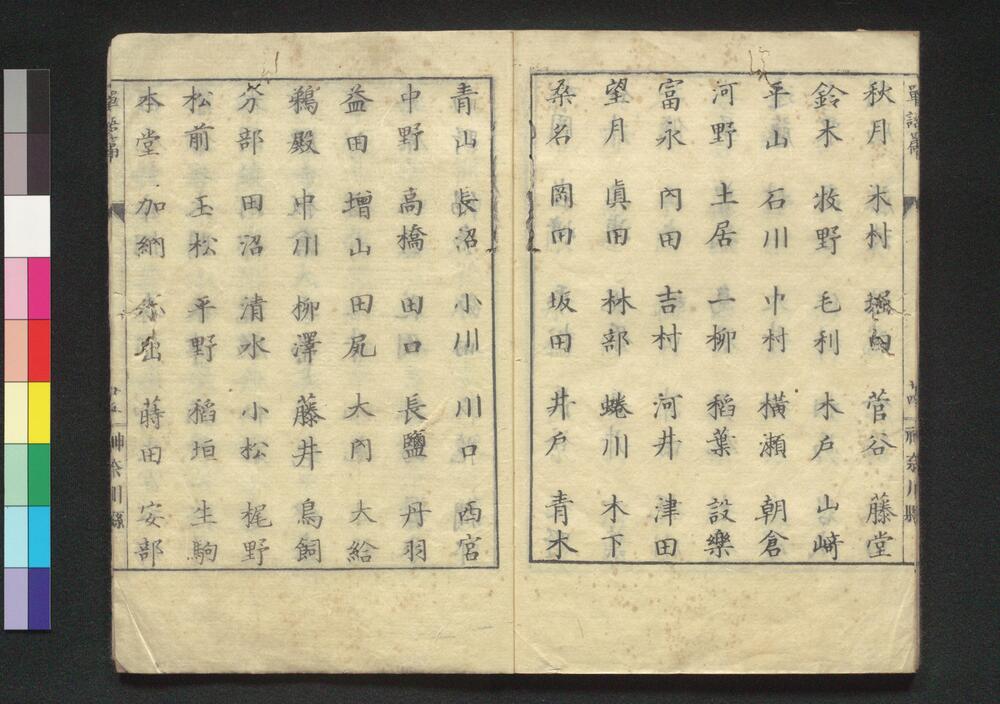 單語篇
秋月 木村 堀田 菅谷 藤堂
鈴木 牧野 毛利 木戸 山崎
平山 石川 中村 橫瀨 朝倉
河野 土居 一柳 稻葉 設樂
富永 內田 吉村 河井 津田
望月 眞田 林部 蜷川 木下
桑名 岡田 坂田 井戸 青木
廿四 神奈川縣
青山 長沼 小川 川口 西宮
中野 高橋 田口 長鹽 丹羽
益田 增山 田尻 大門 大給
鵜殿 中川 柳澤 藤井 鳥飼
分部 田沼 清水 小松 梶野
松前 玉松 平野 稻垣 生駒
本堂 加納 蒔田 安部
單語篇
廿五 神奈川縣